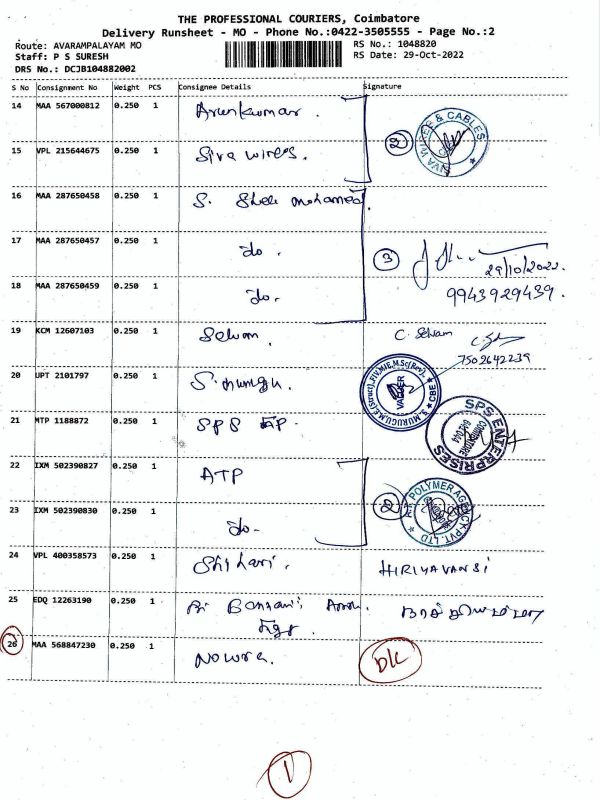 THE PROFESSIONAL COURIERS, Coimbatore
Delivery Runsheet - MO - Phone No.:0422-3505555 - Page No.:2
Route: AVARAMPALAYAM MO RS No.: 1048820
Staff: P S SURESH RS Date: 29-Oct-2022
DRS No.: DCJB104882002
S No Consignment No Weight PCS Consignee Details Signature
14 MAA 567000812 0.250 1 Arunkumar.
SIVA WIRES & CABLES
15 VPL 215644675 0.250 1 Siva wires. 2
16 MAA 287650458 0.250 1 S. mohamed.
17 MAA 287650457 0.250 1 do. 3
29/10/2022.
18 MAA 287650459 0.250 1 do. 9943929439.
19 KCM 12607103 0.250 1 Selvam. C. Selvam
7502642239
20 UPT 2101797 0.250 1 S. VALUER CBE
21 MTP 1188872 0.250 1 SPS SPS ENTERPRISES
22 IXM 502390827 0.250 1 ATP
POLYMER AGENCY PVT. LTD
23 IXM 502390830 0.250 1 do- 2
24 VPL 400358573 0.250 1 HIRIYAVANSI
25 EDQ 12263190 0.250 1
26 MAA 568847230 0.250 1 Nowra. D/C
1